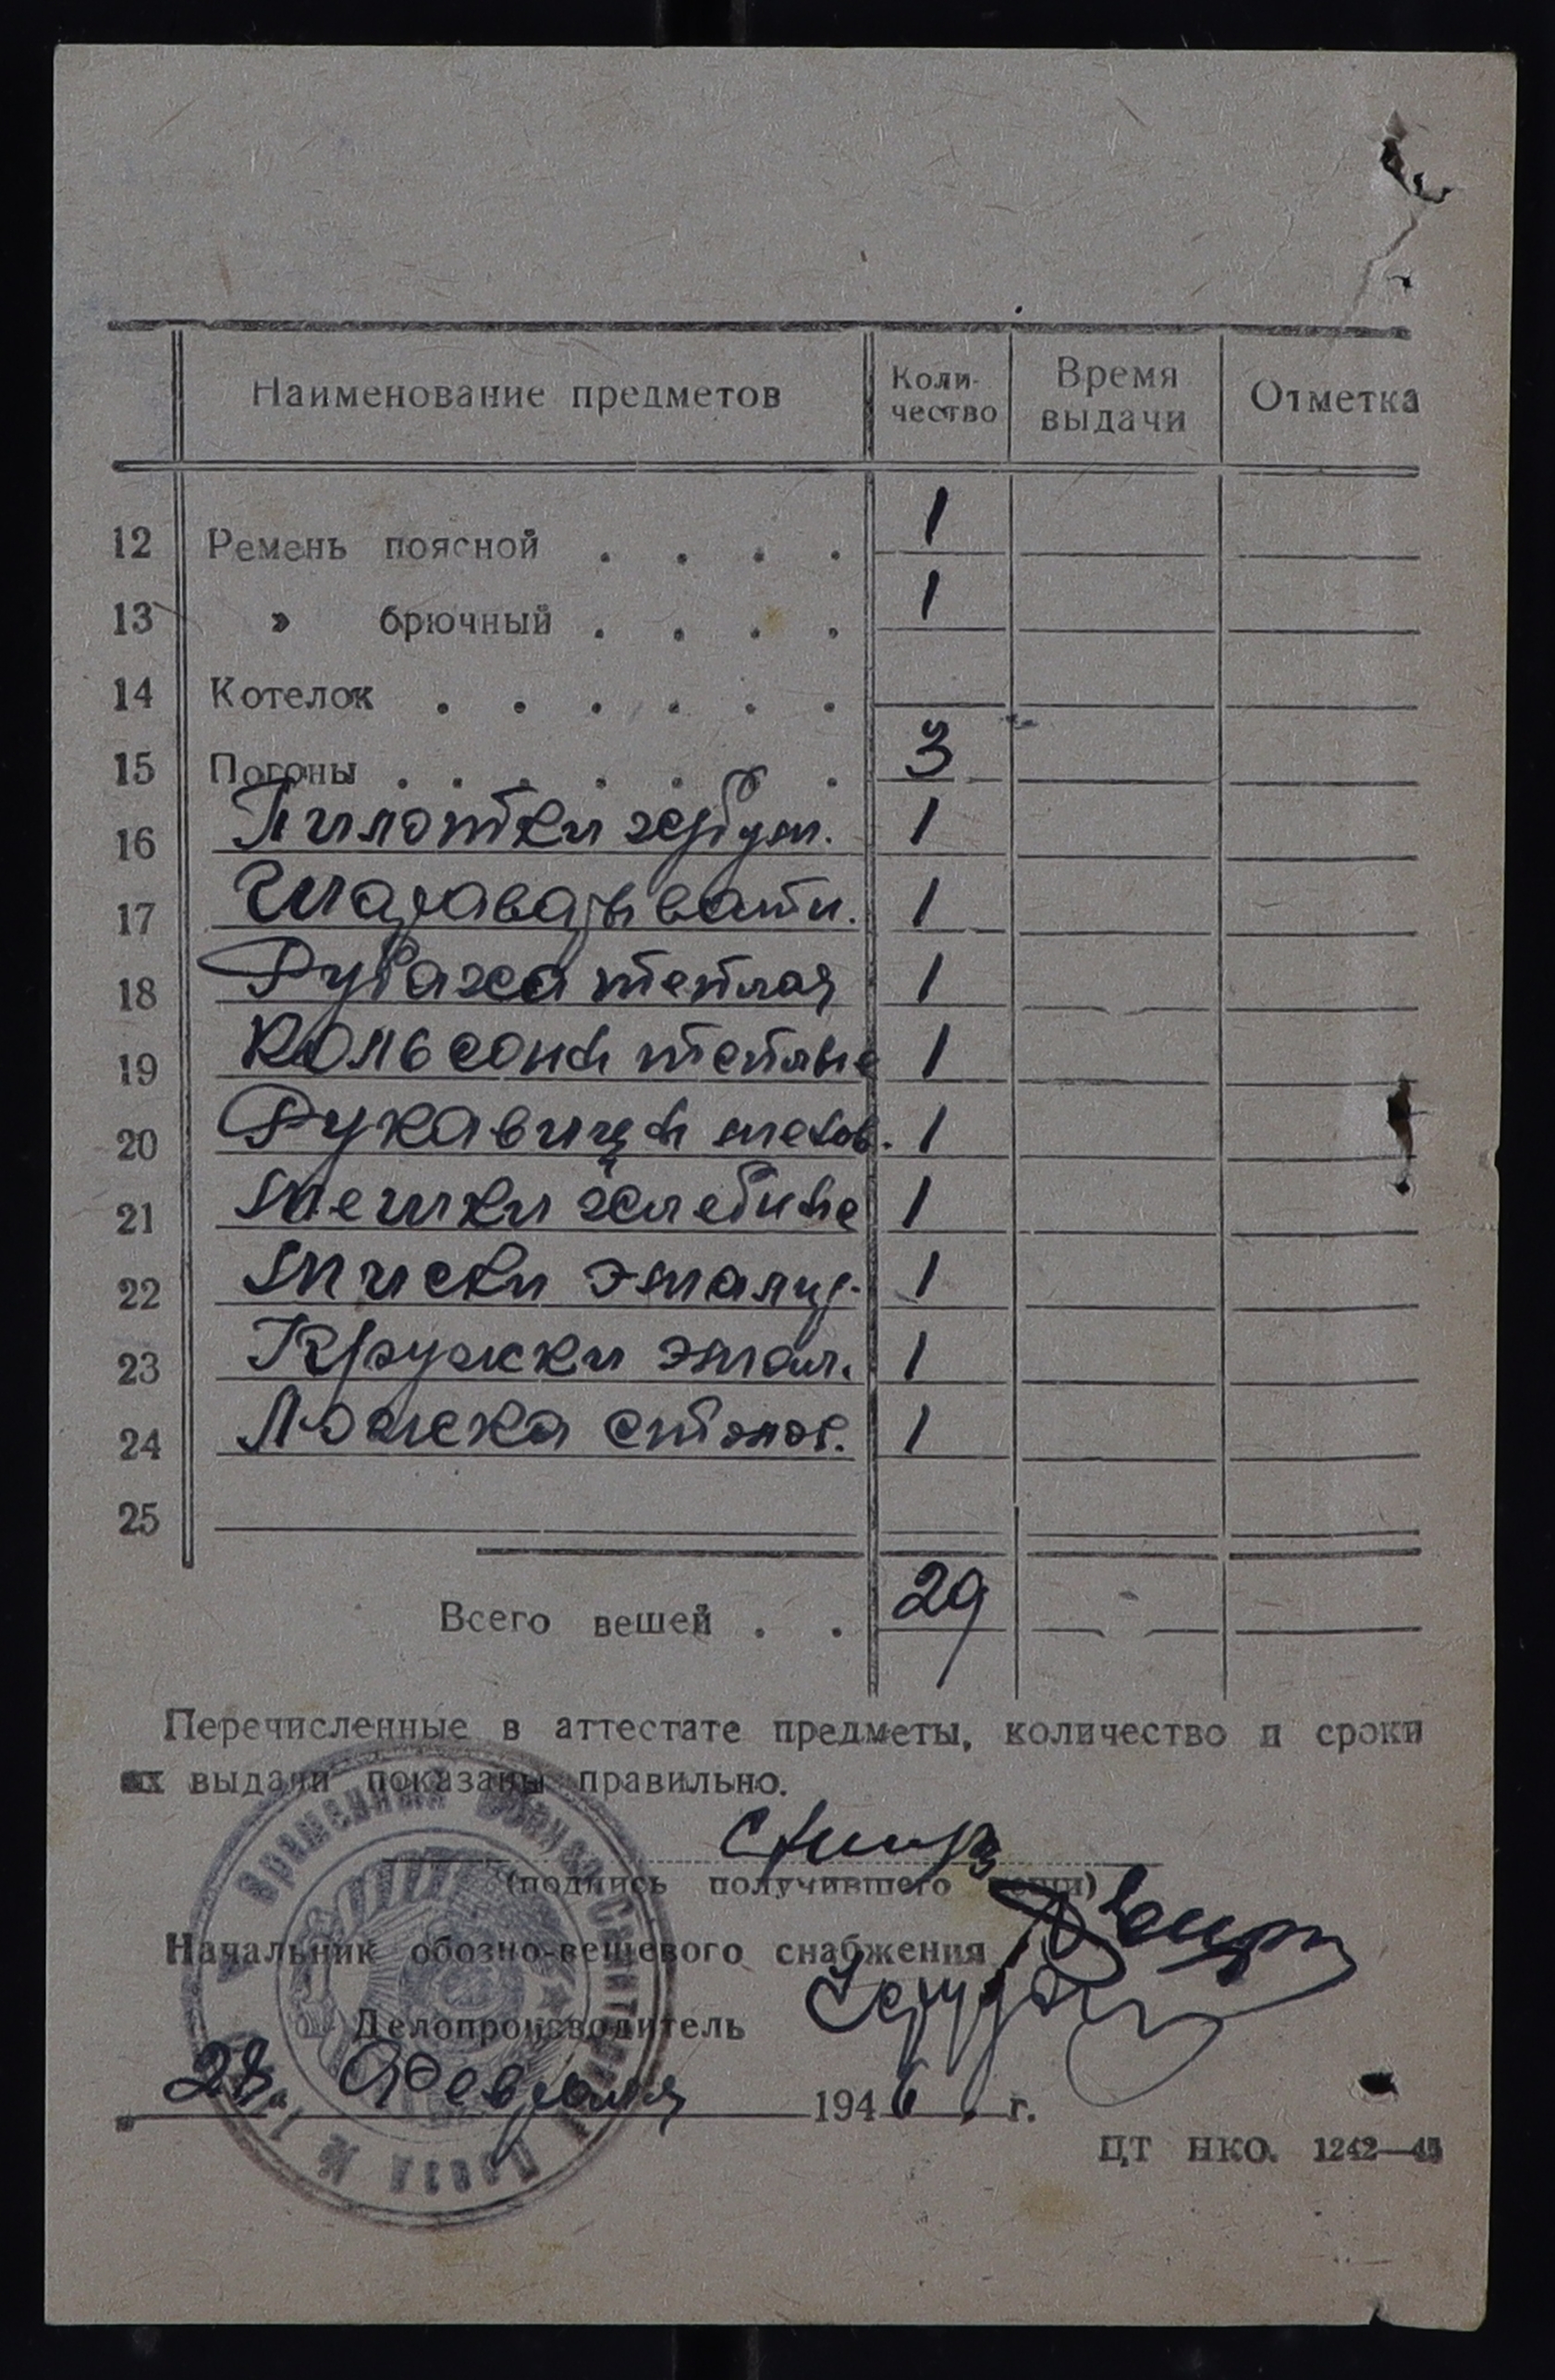 Наименование предметов Коли-чество Время выдачи Отметка
12 Ремень поясной . . . . 1
13 » брючный . . . . 1
14 Котелок . . . . . .
15 Погоны . . . . . . 3
16 Пилотки хр/бум. 1
17 Шаравары ватн. 1
18 Рубаха теплая 1
19 Кольсоны теплые 1
20 Рукавицы мехов. 1
21 Мешки хлебные 1
22 Миски эмалир. 1
23 Кружки эмал. 1
24 Ложка столов. 1
25
Всего вещей . . 29
Перечисленные в аттестате предметы, количество и сроки
их выдачи показаны правильно.
(подпись получившего вещи)
Начальник обозно-вещевого снабжения
Делопроизводитель
28 Февраля 1946 г.
ЦТ НКО. 1242—45